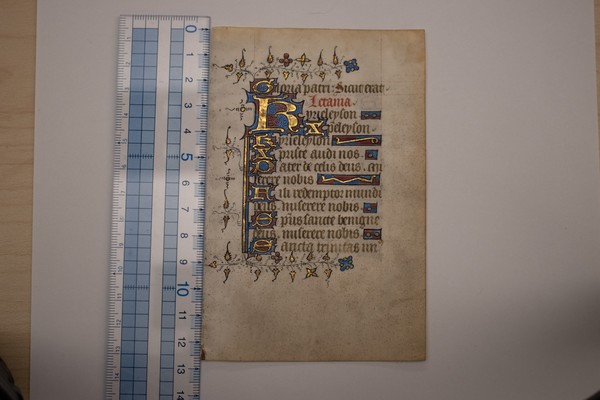 Gloria patri: Sicut erat
Letania
Kyrieleyson
Xpieleyson
kyrieleyson
Xpiste audi nos
Pater de celis deus
serere nobis
Fili redemptor mundi
deus miserere nobis
Spūs sancte benigne
deus miserere nobis
Sancta trinitas un
0
1
2
3
4
5
6
7
8
9
10
11
12
13
14